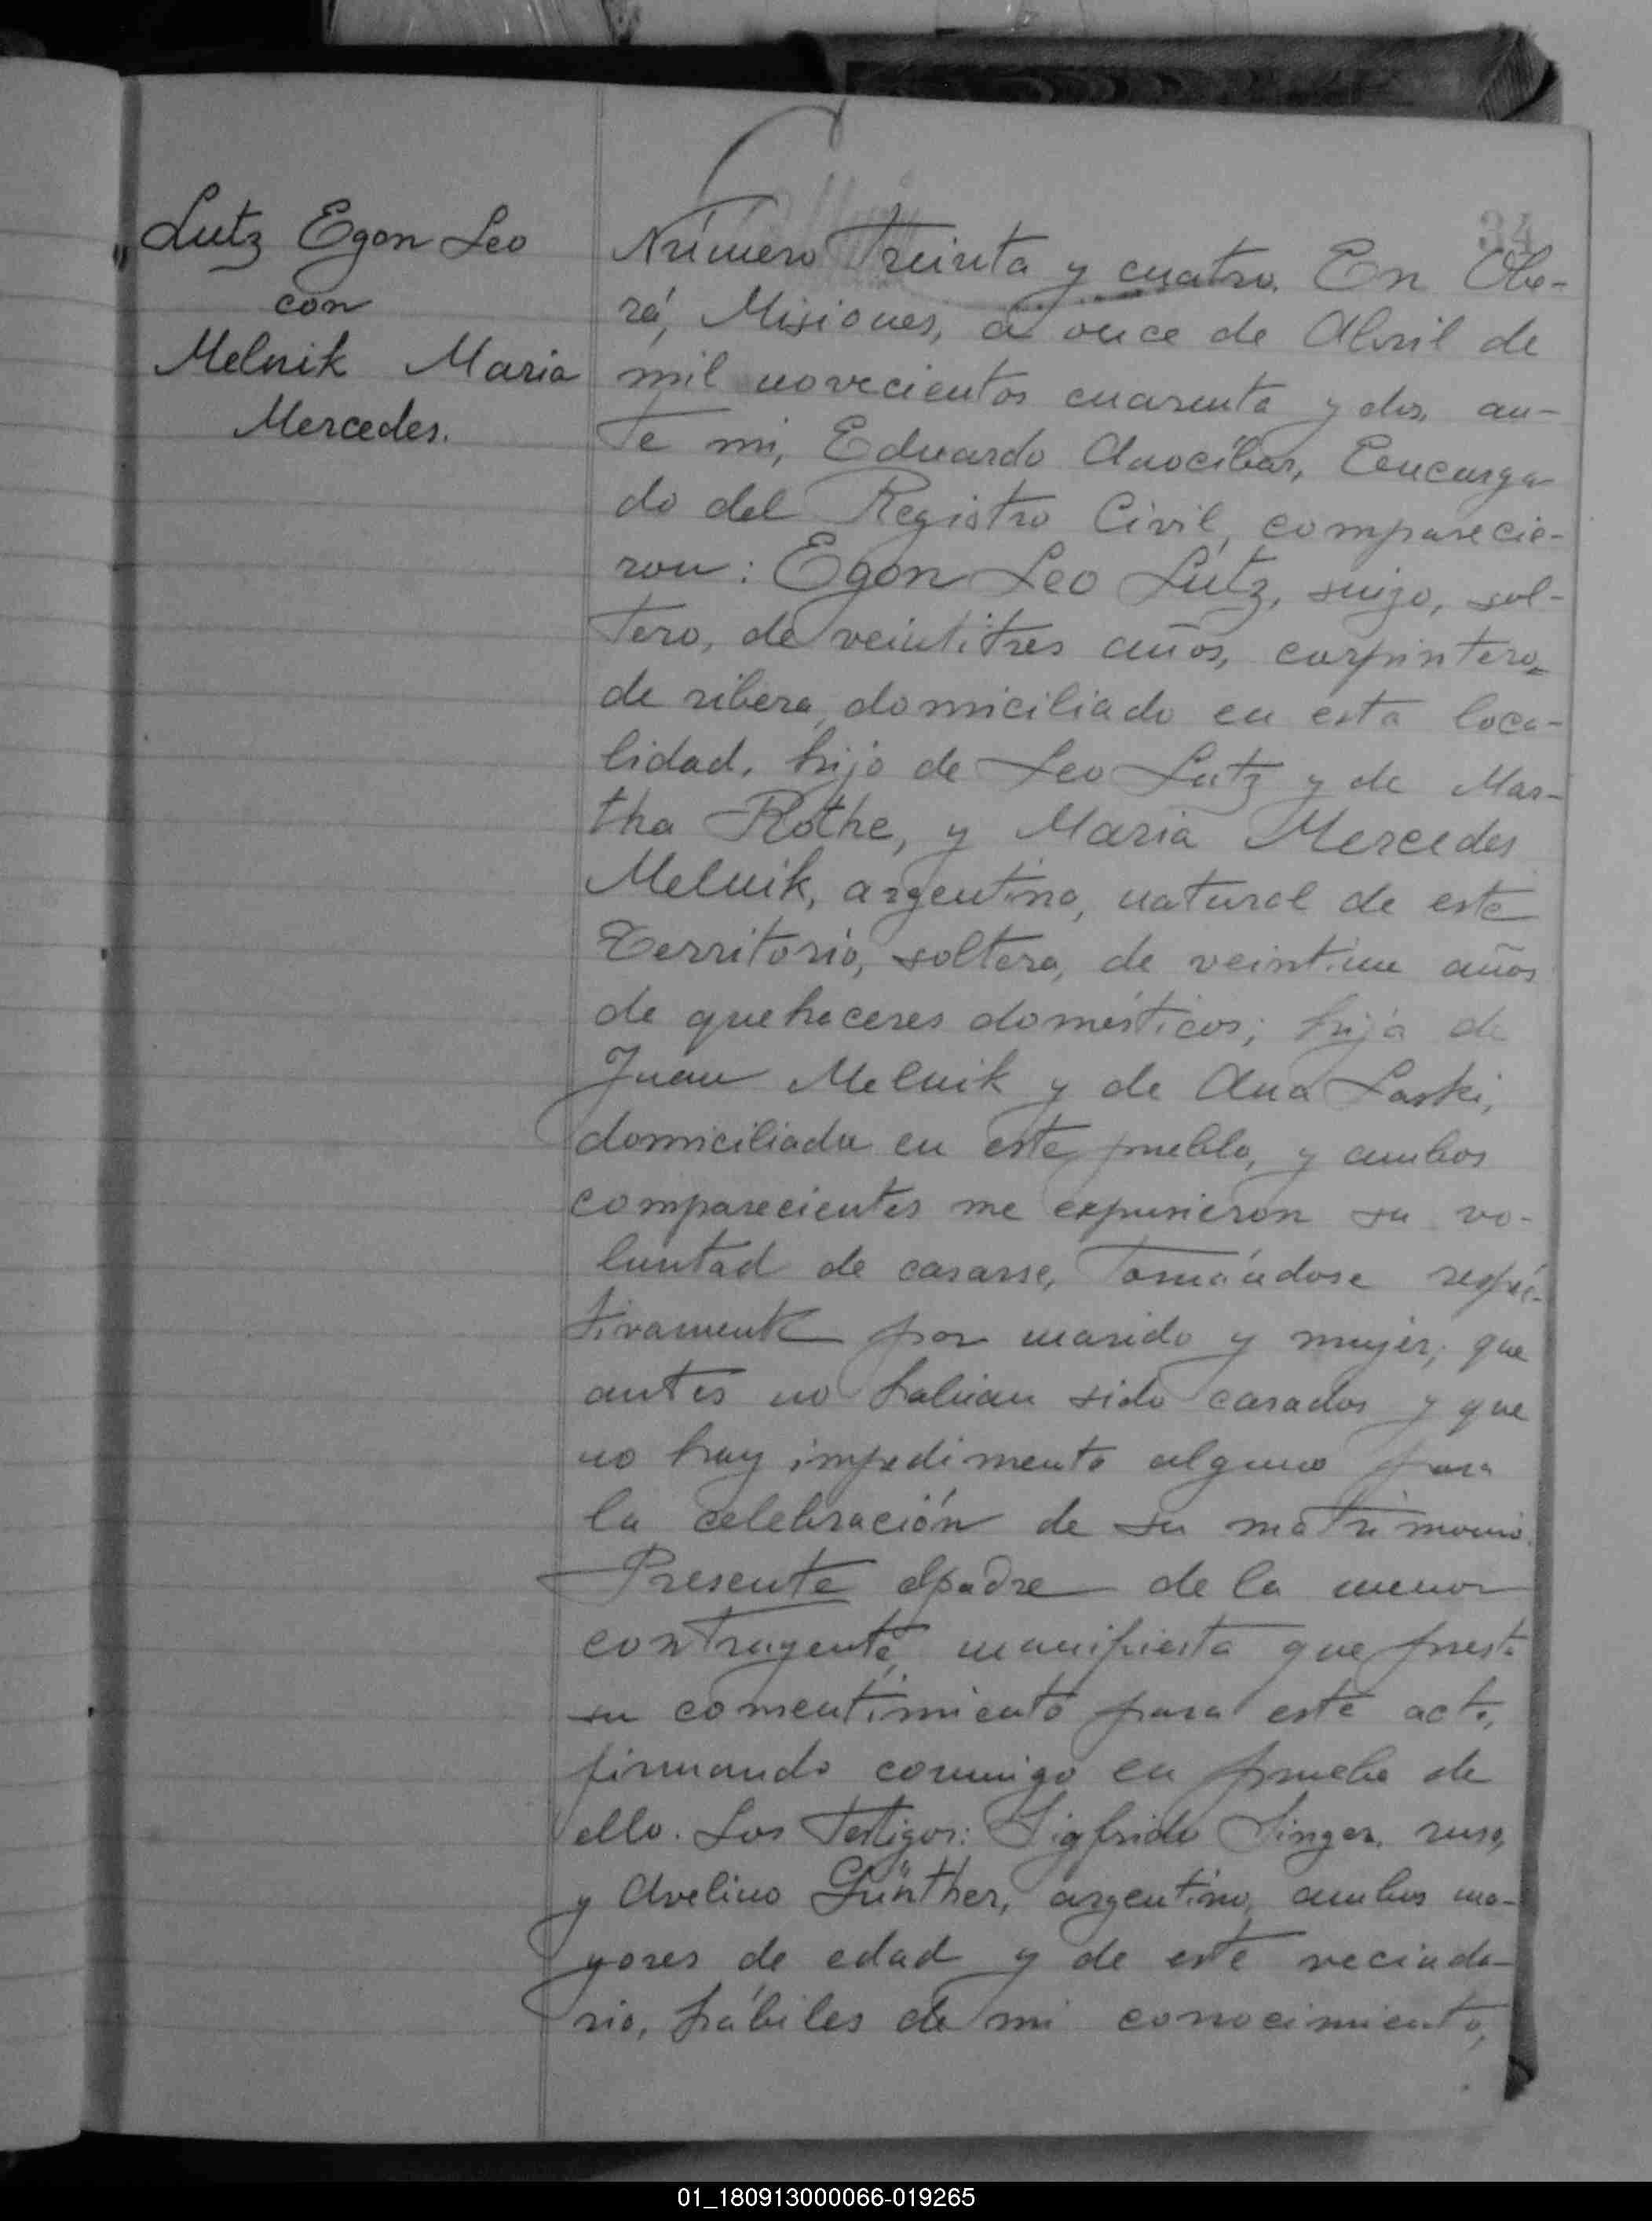 Lutz Egon Leo
con
Melnik Maria
Mercedes.
34
Número Treinta y cuatro. En Obe-
rá, Misiones, a once de Abril de
mil novecientos cuarenta y dos, an-
te mi, Eduardo Anocíbar, Encarga-
do del Registro Civil, comparecie-
ron: Egon Leo Lutz, suizo, sol-
tero, de veintitres años, carpintero
de ribera, domiciliado en esta loca-
lidad, hijo de Leo Lutz y de Mar-
tha Rothe, y Maria Mercedes
Melnik, argentina, natural de este
Territorio, soltera, de veintiun años
de quehaceres domésticos; hija de
Juan Melnik y de Ana Laski,
domiciliada en este pueblo, y ambos
comparecientes me expusieron su vo-
luntad de casarse, tomándose respec-
tivamente por marido y mujer; que
antes no habian sido casados y que
no hay impedimento alguno para
la celebración de su matrimonio.
Presente el padre de la menor
contrayente, manifiesta que presta
su consentimiento para este acto,
firmando conmigo en prueba de
ello. Los testigos: Sigfrido Singer, ruso,
y Avelino Günther, argentino, ambos ma-
yores de edad y de este vecinda-
rio, hábiles de mi conocimiento,
01_180913000066-019265